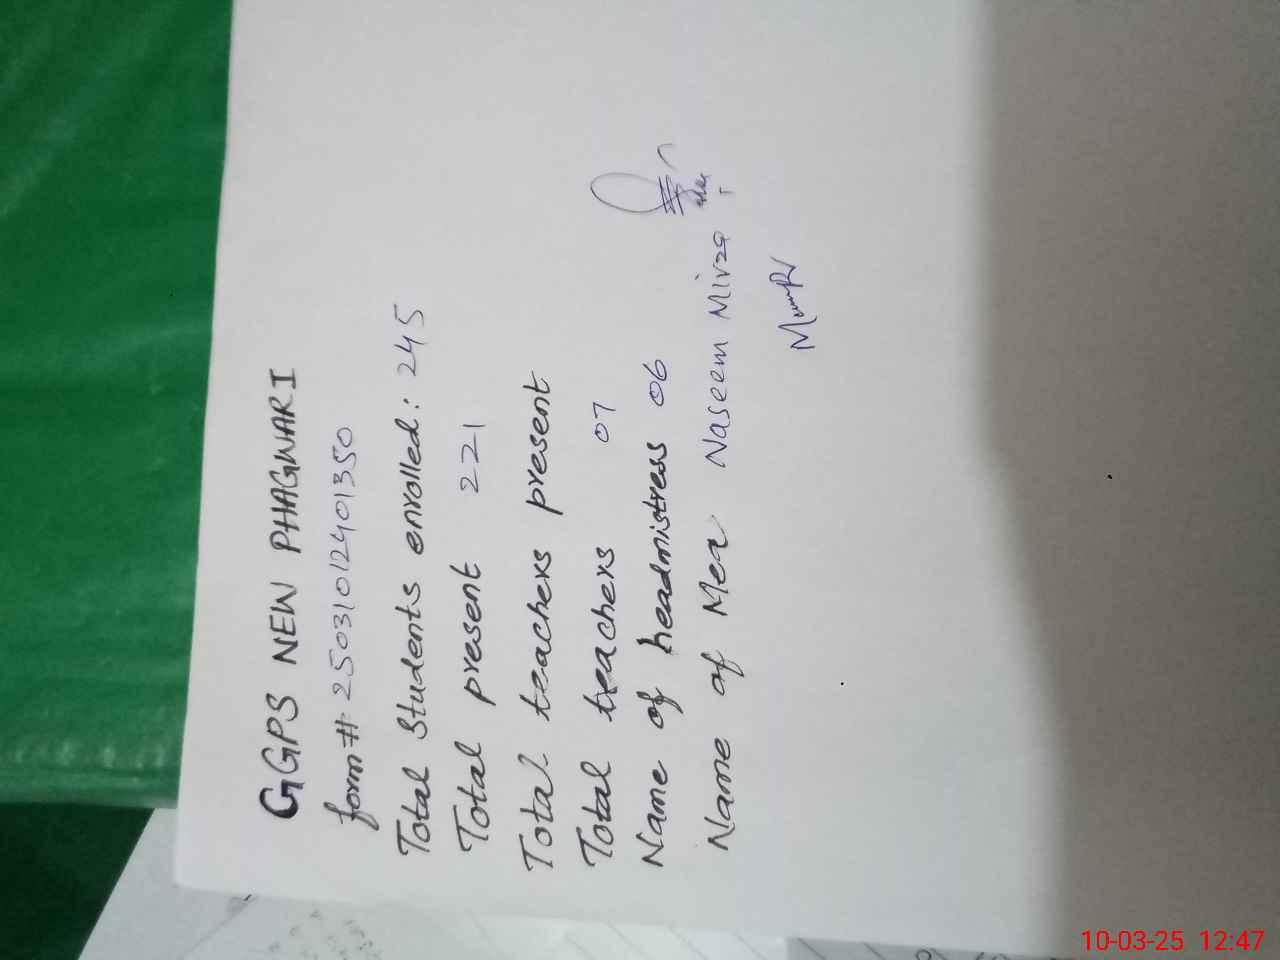 GGPS NEW PHAGWARI
form# 25031012401350
Total Students enrolled: 245
Total present 221
Total teachers present
Total teachers 07
Name of headmistress 06
Name of Mea Naseem Mirza
10-03-25 12:47